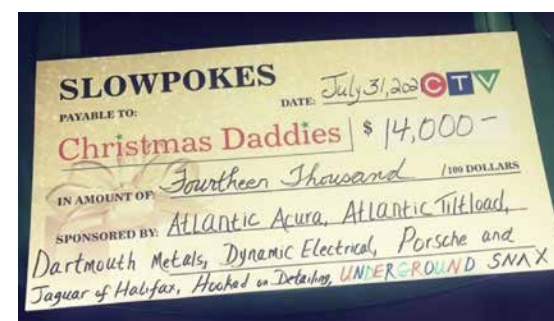 SLOWPOKES
DATE: July 31, 202 CTV
PAYABLE TO:
Christmas Daddies $ 14,000-
IN AMOUNT OF: Fourtheen Thousand /100 DOLLARS
SPONSORED BY: Atlantic Acura, Atlantic Tiltload,
Dartmouth Metals, Dynamic Electrical, Porsche and
Jaguar of Halifax, Hooked on Detailing, UNDERGROUND SNAX